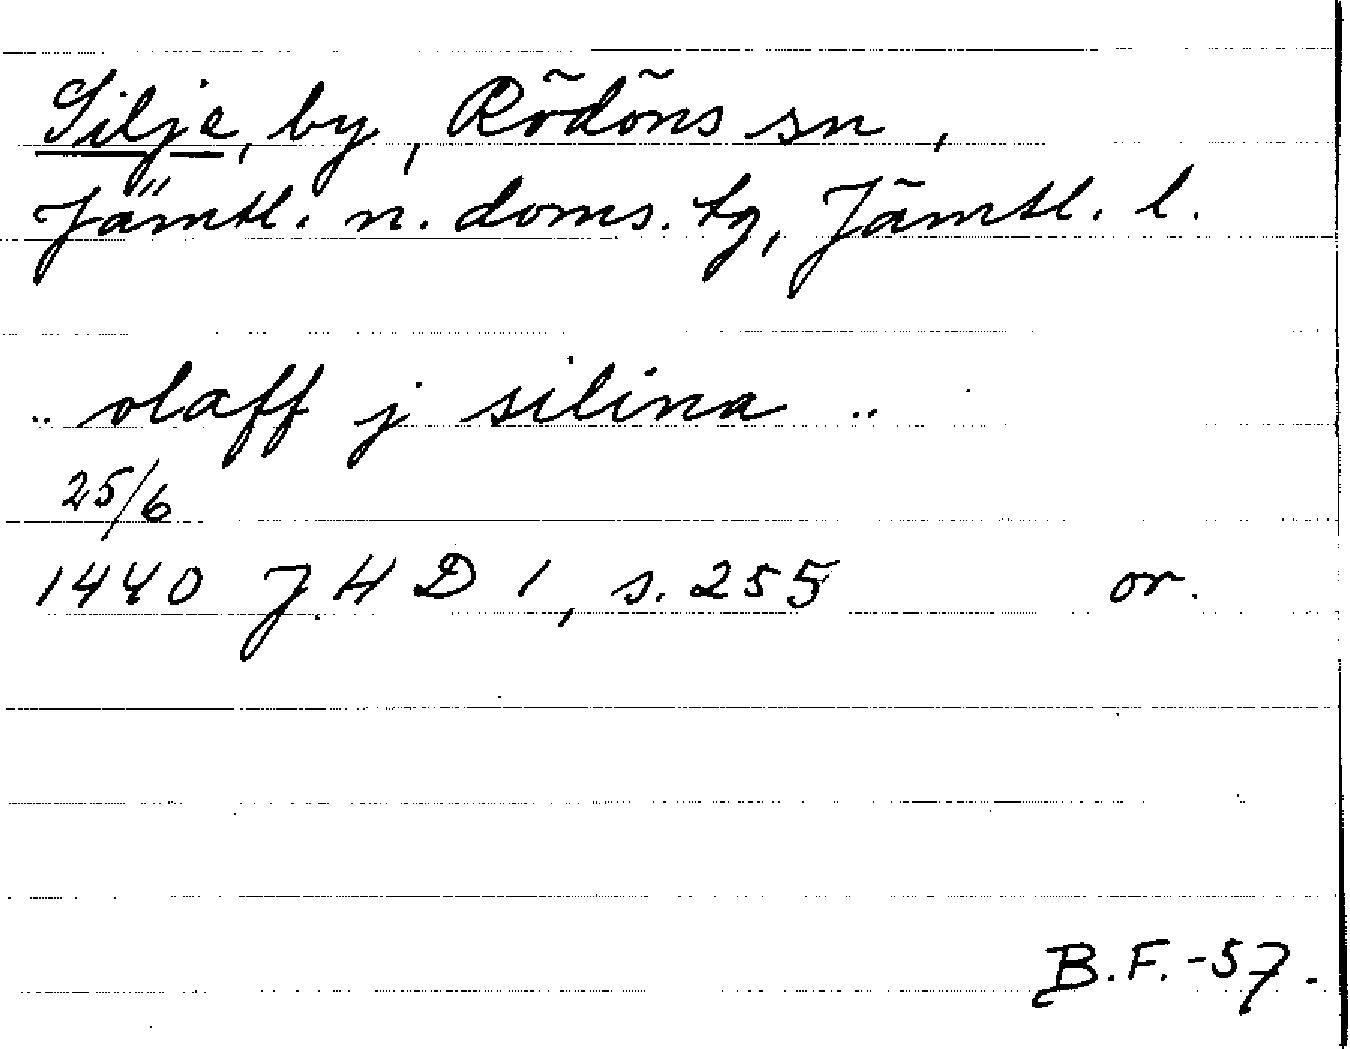 Silje, by, Rödöns sn,
Jämtl. n. doms. tg, Jämtl. l.
.. olaff j silina ..
25/6
1440 J.H D 1, s. 255 or.
B.F.-57.